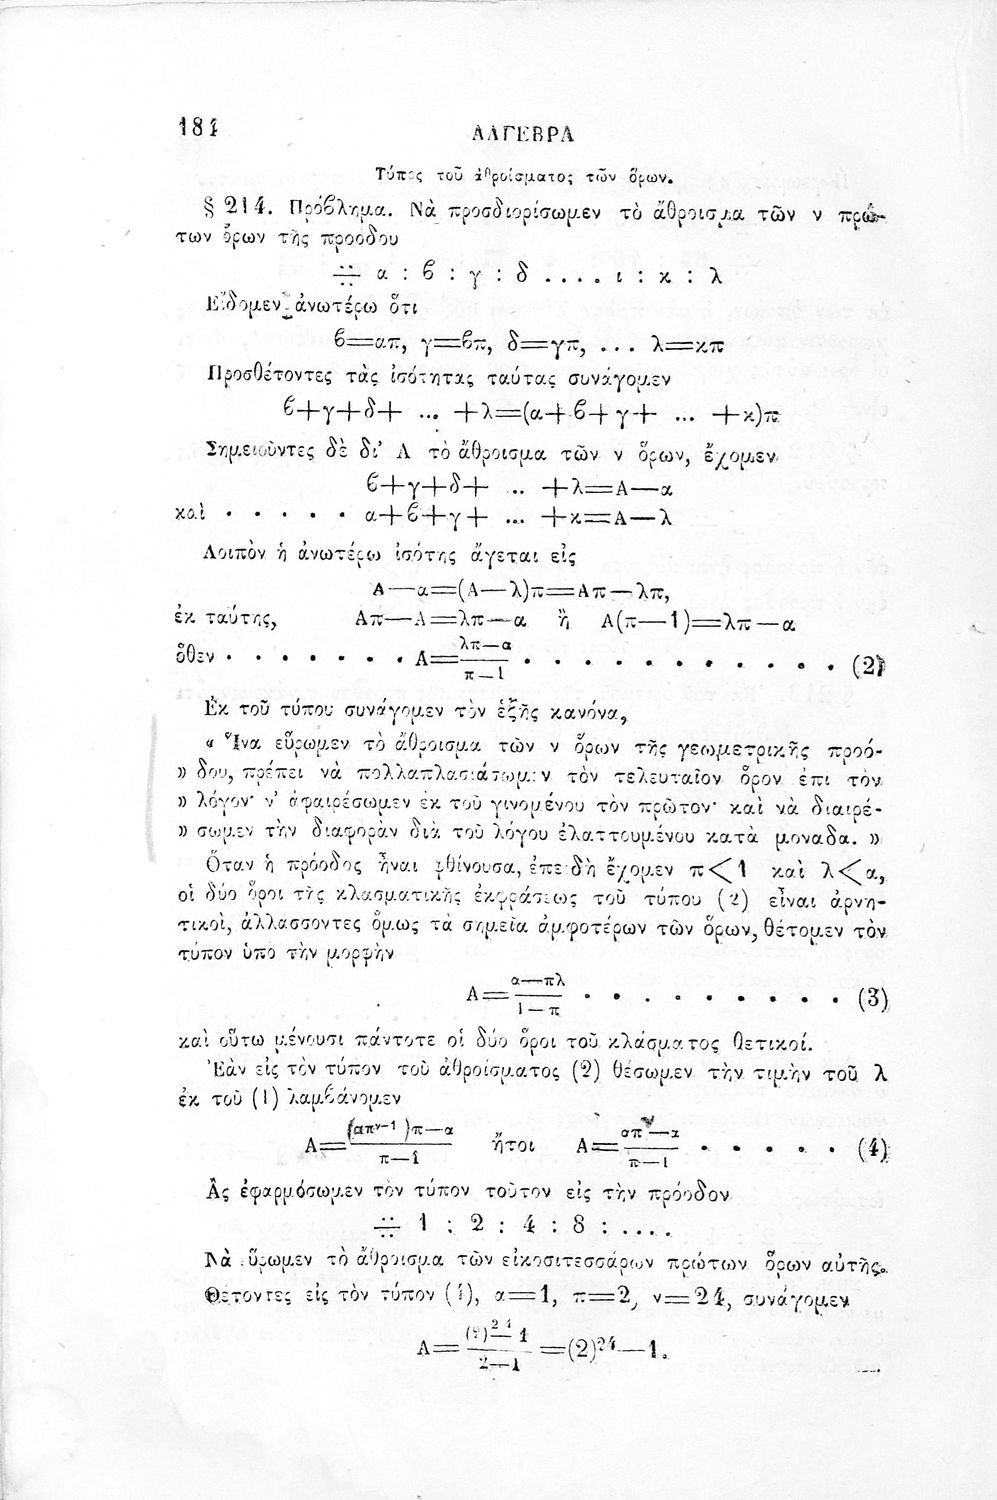 184
ΑΛΓΕΒΡΑ
Τύπος τοῦ ἀθροίσματος τῶν ὅρων.
§ 214. Πρόϐλημα. Νὰ προσδιορίσωμεν τὸ ἄθροισμα τῶν ν πρώ-
των ὅρων τῆς προόδου
∺ α : ϐ : γ : δ .... ι : κ : λ
Εἴδομεν ἀνωτέρω ὅτι
ϐ=απ, γ=ϐπ, δ=γπ, ... λ=κπ
Προσθέτοντες τὰς ἰσότητας ταύτας συνάγομεν
ϐ+γ+δ+ ... +λ=(α+ϐ+γ+ ... +κ)π
Σημειοῦντες δὲ δι’ Α τὸ ἄθροισμα τῶν ν ὅρων, ἔχομεν
ϐ+γ+δ+ .. +λ=Α—α
καὶ · · · · · α+ϐ+γ+ ... +κ=Α—λ
Λοιπὸν ἡ ἀνωτέρω ἰσότης ἄγεται εἰς
Α—α=(Α—λ)π=Απ—λπ,
ἐκ ταύτης, Απ—Α=λπ—α ἢ Α(π—1)=λπ—α
ὅθεν · · · · · · · Α=(λπ—α)/(π—1) · · · · · · · · · · · (2)
Ἐκ τοῦ τύπου συνάγομεν τὸν ἑξῆς κανόνα,
« Ἵνα εὕρωμεν τὸ ἄθροισμα τῶν ν ὅρων τῆς γεωμετρικῆς προό-
» δου, πρέπει νὰ πολλαπλασιάσωμεν τὸν τελευταῖον ὅρον ἐπι τὸν
» λόγον· ν’ ἀφαιρέσωμεν ἐκ τοῦ γινομένου τὸν πρῶτον· καὶ νὰ διαιρέ-
» σωμεν τὴν διαφορὰν διὰ τοῦ λόγου ἐλαττουμένου κατὰ μοναδα. »
Ὅταν ἡ πρόοδος ἦναι φθίνουσα, ἐπειδὴ ἔχομεν π<1 καὶ λ<α,
οἱ δύο ὅροι τῆς κλασματικῆς ἐκφράσεως τοῦ τύπου (2) εἶναι ἀρνη-
τικοὶ, ἀλλασσοντες ὅμως τὰ σημεῖα ἀμφοτέρων τῶν ὅρων, θέτομεν τὸν
τύπον ὑπὸ τὴν μορφὴν
Α=(α—πλ)/(1—π) · · · · · · · · · (3)
καὶ οὕτω μένουσι πάντοτε οἱ δύο ὅροι τοῦ κλάσματος θετικοί.
Ἐὰν εἰς τὸν τύπον τοῦ ἀθροίσματος (2) θέσωμεν τὴν τιμὴν τοῦ λ
ἐκ τοῦ (1) λαμϐάνομεν
Α=((απ^ν-1)π—α)/(π—1) ἤτοι Α=(απ^ν—α)/(π—1) · · · · · (4)
Ἂς ἐφαρμόσωμεν τὸν τύπον τοῦτον εἰς τὴν πρόοδον
∺ 1 : 2 : 4 : 8 : ....
Νὰ εὕρωμεν τὸ ἄθροισμα τῶν εἰκοσιτεσσάρων πρώτων ὅρων αὐτῆς.
Θέτοντες εἰς τὸν τύπον (4), α=1, π=2, ν=24, συνάγομεν
Α=((2)^24—1)/(2—1)=(2)^24—1.